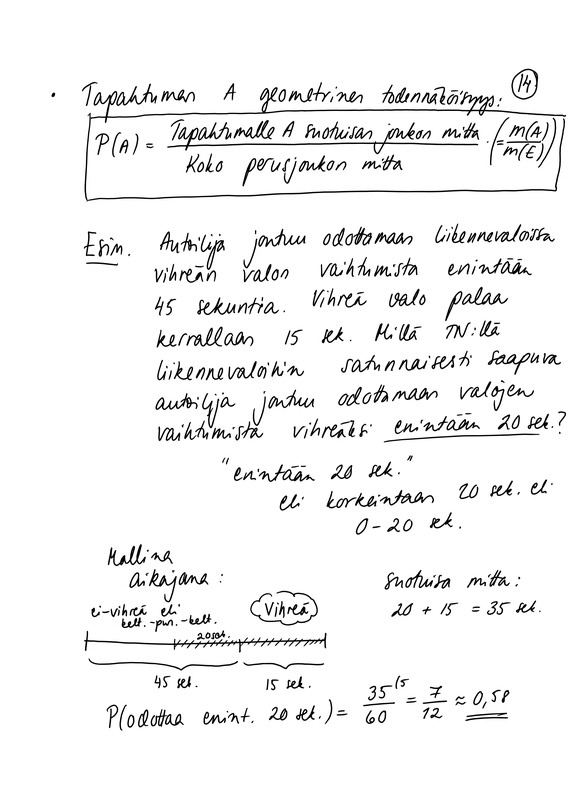 14
• Tapahtuman A geometrinen todennäköisyys:
P(A) = Tapahtumalle A suotuisan joukon mitta / Koko perusjoukon mitta . (= m(A) / m(E))
Esim. Autoilija joutuu odottamaan liikennevaloissa
vihreän valon vaihtumista enintään
45 sekuntia. Vihreä valo palaa
kerrallaan 15 sek. Millä TN:llä
liikennevaloihin satunnaisesti saapuva
autoilija joutuu odottamaan valojen
vaihtumista vihreäksi enintään 20 sek.?
"enintään 20 sek."
eli korkeintaan 20 sek. eli
0-20 sek.
Mallina
aikajana:
suotuisa mitta:
20 + 15 = 35 sek.
ei-vihreä eli
kelt.-pun.-kelt.
Vihreä
20 sek.
45 sek. 15 sek.
P(odottaa enint. 20 sek.) = 35/60 (5 = 7/12 ≈ 0,58